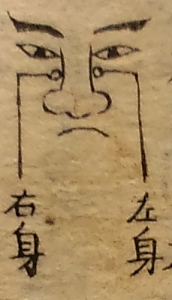 右身
左身